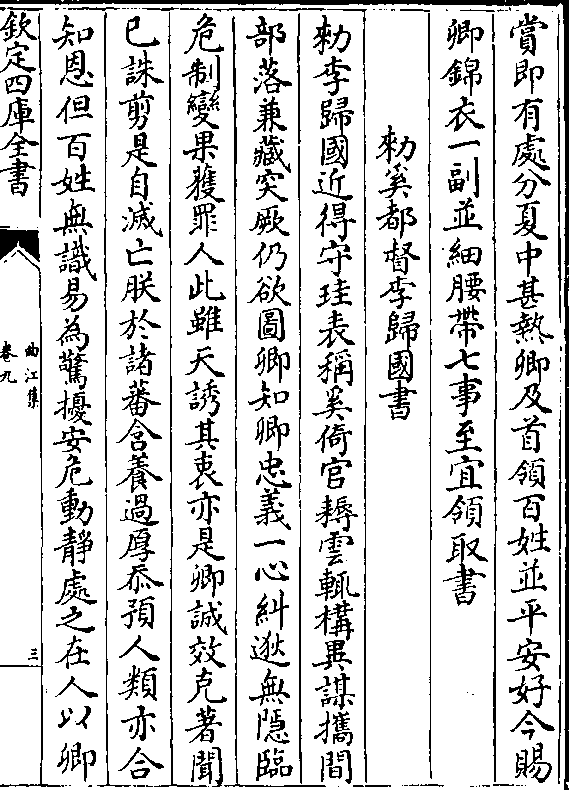 賞即有處分夏中甚熱卿及首領百姓並平安好今賜
卿錦衣一副並細腰帶七事至宜領取書
勅奚都督李歸國書
勅李歸國近得守珪表稱奚倚官耨雲輒構異謀攜間
部落兼藏突厥仍欲圖卿知卿忠義一心糾逖無隱臨
危制變果獲罪人此雖天誘其衷亦是卿誠效克著聞
已誅剪是自滅亡朕於諸蕃含養過厚忝預人類亦合
知恩但百姓無識易為驚擾安危動靜處之在人以卿
欽定四庫全書
曲江集
卷九
三